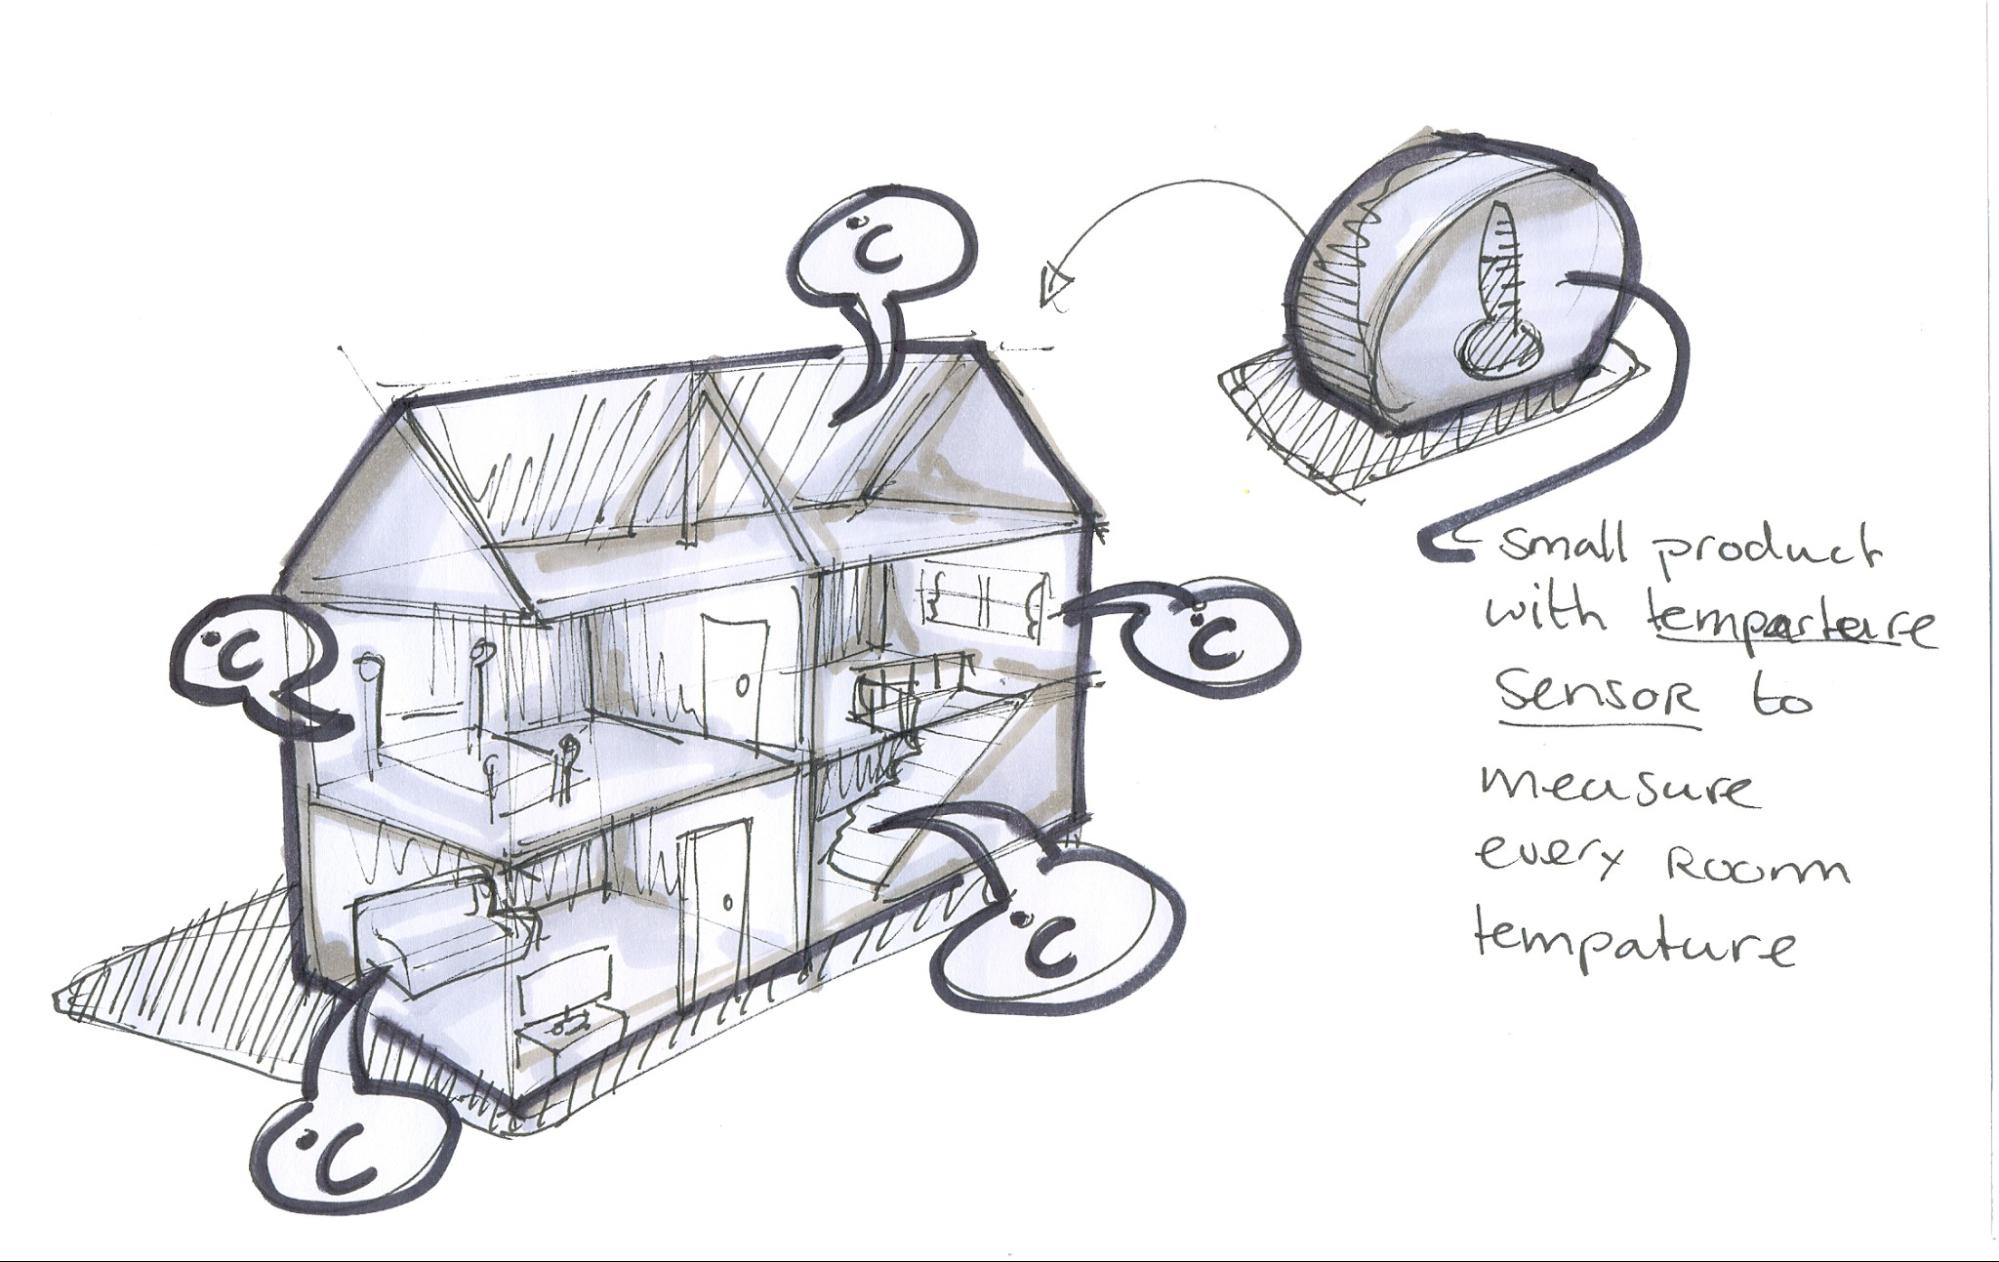 °C
°C
°C
°C
°C
small product
with temparture
sensor to
measure
every room
tempature